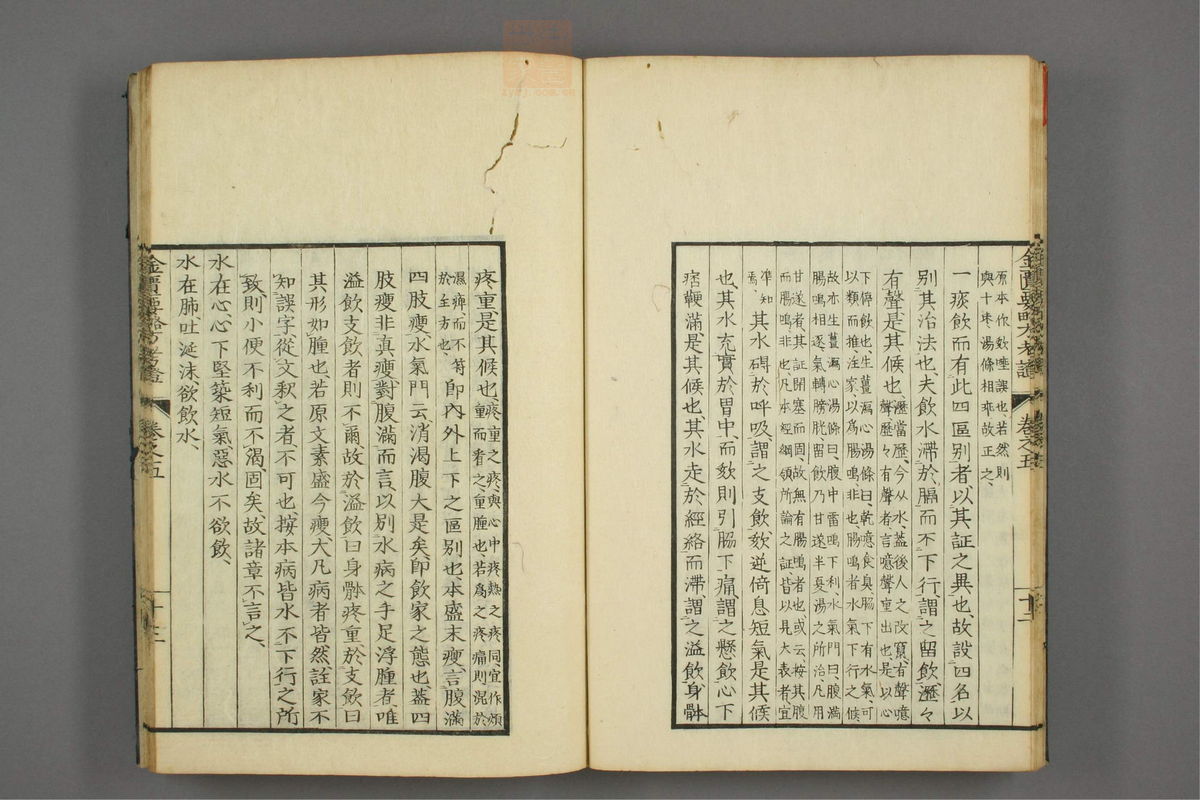 原本作欬唾誤也、若然則
與十枣湯條相乖故正之、
一痰飲而有此四區别者以其証之異也、故設四名以
别其治法也、夫飲水滞於膈而不下行、謂之留飲、瀝々
有聲、是其候也、瀝當歷、今从水、蓋後人之改竄、有聲噫
聲歷々有聲者、言噫聲重出也、是以心
下停飲也、生薑瀉心湯條曰、乾噫食臭、脇下有水氣、可
以類而推、注家以爲腸鳴、非也、腸鳴者水氣下行之候
故亦生薑瀉心湯條曰、腹中雷鳴下利、水氣門曰、腹満
腸鳴相逐氣轉膀胱、留飲乃甘遂半夏湯之所治、凡用
甘遂者、其証閉塞而固、故無有腸鳴者也、或云、按其腹
而腸鳴、非也、凡本經綱領所論之証皆以見大表者、宜
准知
焉、其水碍於呼吸、謂之支飲、欬逆倚息短氣、是其候
也、其水充實於胃中、而欬則引脇下痛、謂之懸飲、心下
痞鞕滿、是其候也、其水走於經絡而滞、謂之溢飲、身體
金匱要略
卷之五
十二
疼重、是其候也、疼重之疼、與心中疼熱之疼同、宜作煩
重而看之、重腫也、若爲之疼痛則混於
濕痺、而不符
於主方也、即内外上下之區别也、本盛末瘦、言腹滿
四肢瘦、水氣門云、消渴腹大是矣、即飲家之態也、蓋四
肢瘦非真瘦、對腹滿而言、以别水病之手足浮腫者、唯
溢飲支飲者則不爾、故於溢飲曰身體疼重、於支飲曰
其形如腫也、若原文素盛今瘦、大凡病者皆然、註家不
知誤字、從文釈之者、不可也、按本病皆水不下行之所
致、則小便不利而不渴固矣、故諸章不言之、
水在心、心下堅築短氣、惡水不欲飲、
水在肺、吐涎沫、欲飲水、
金匱要略
卷之五
十三